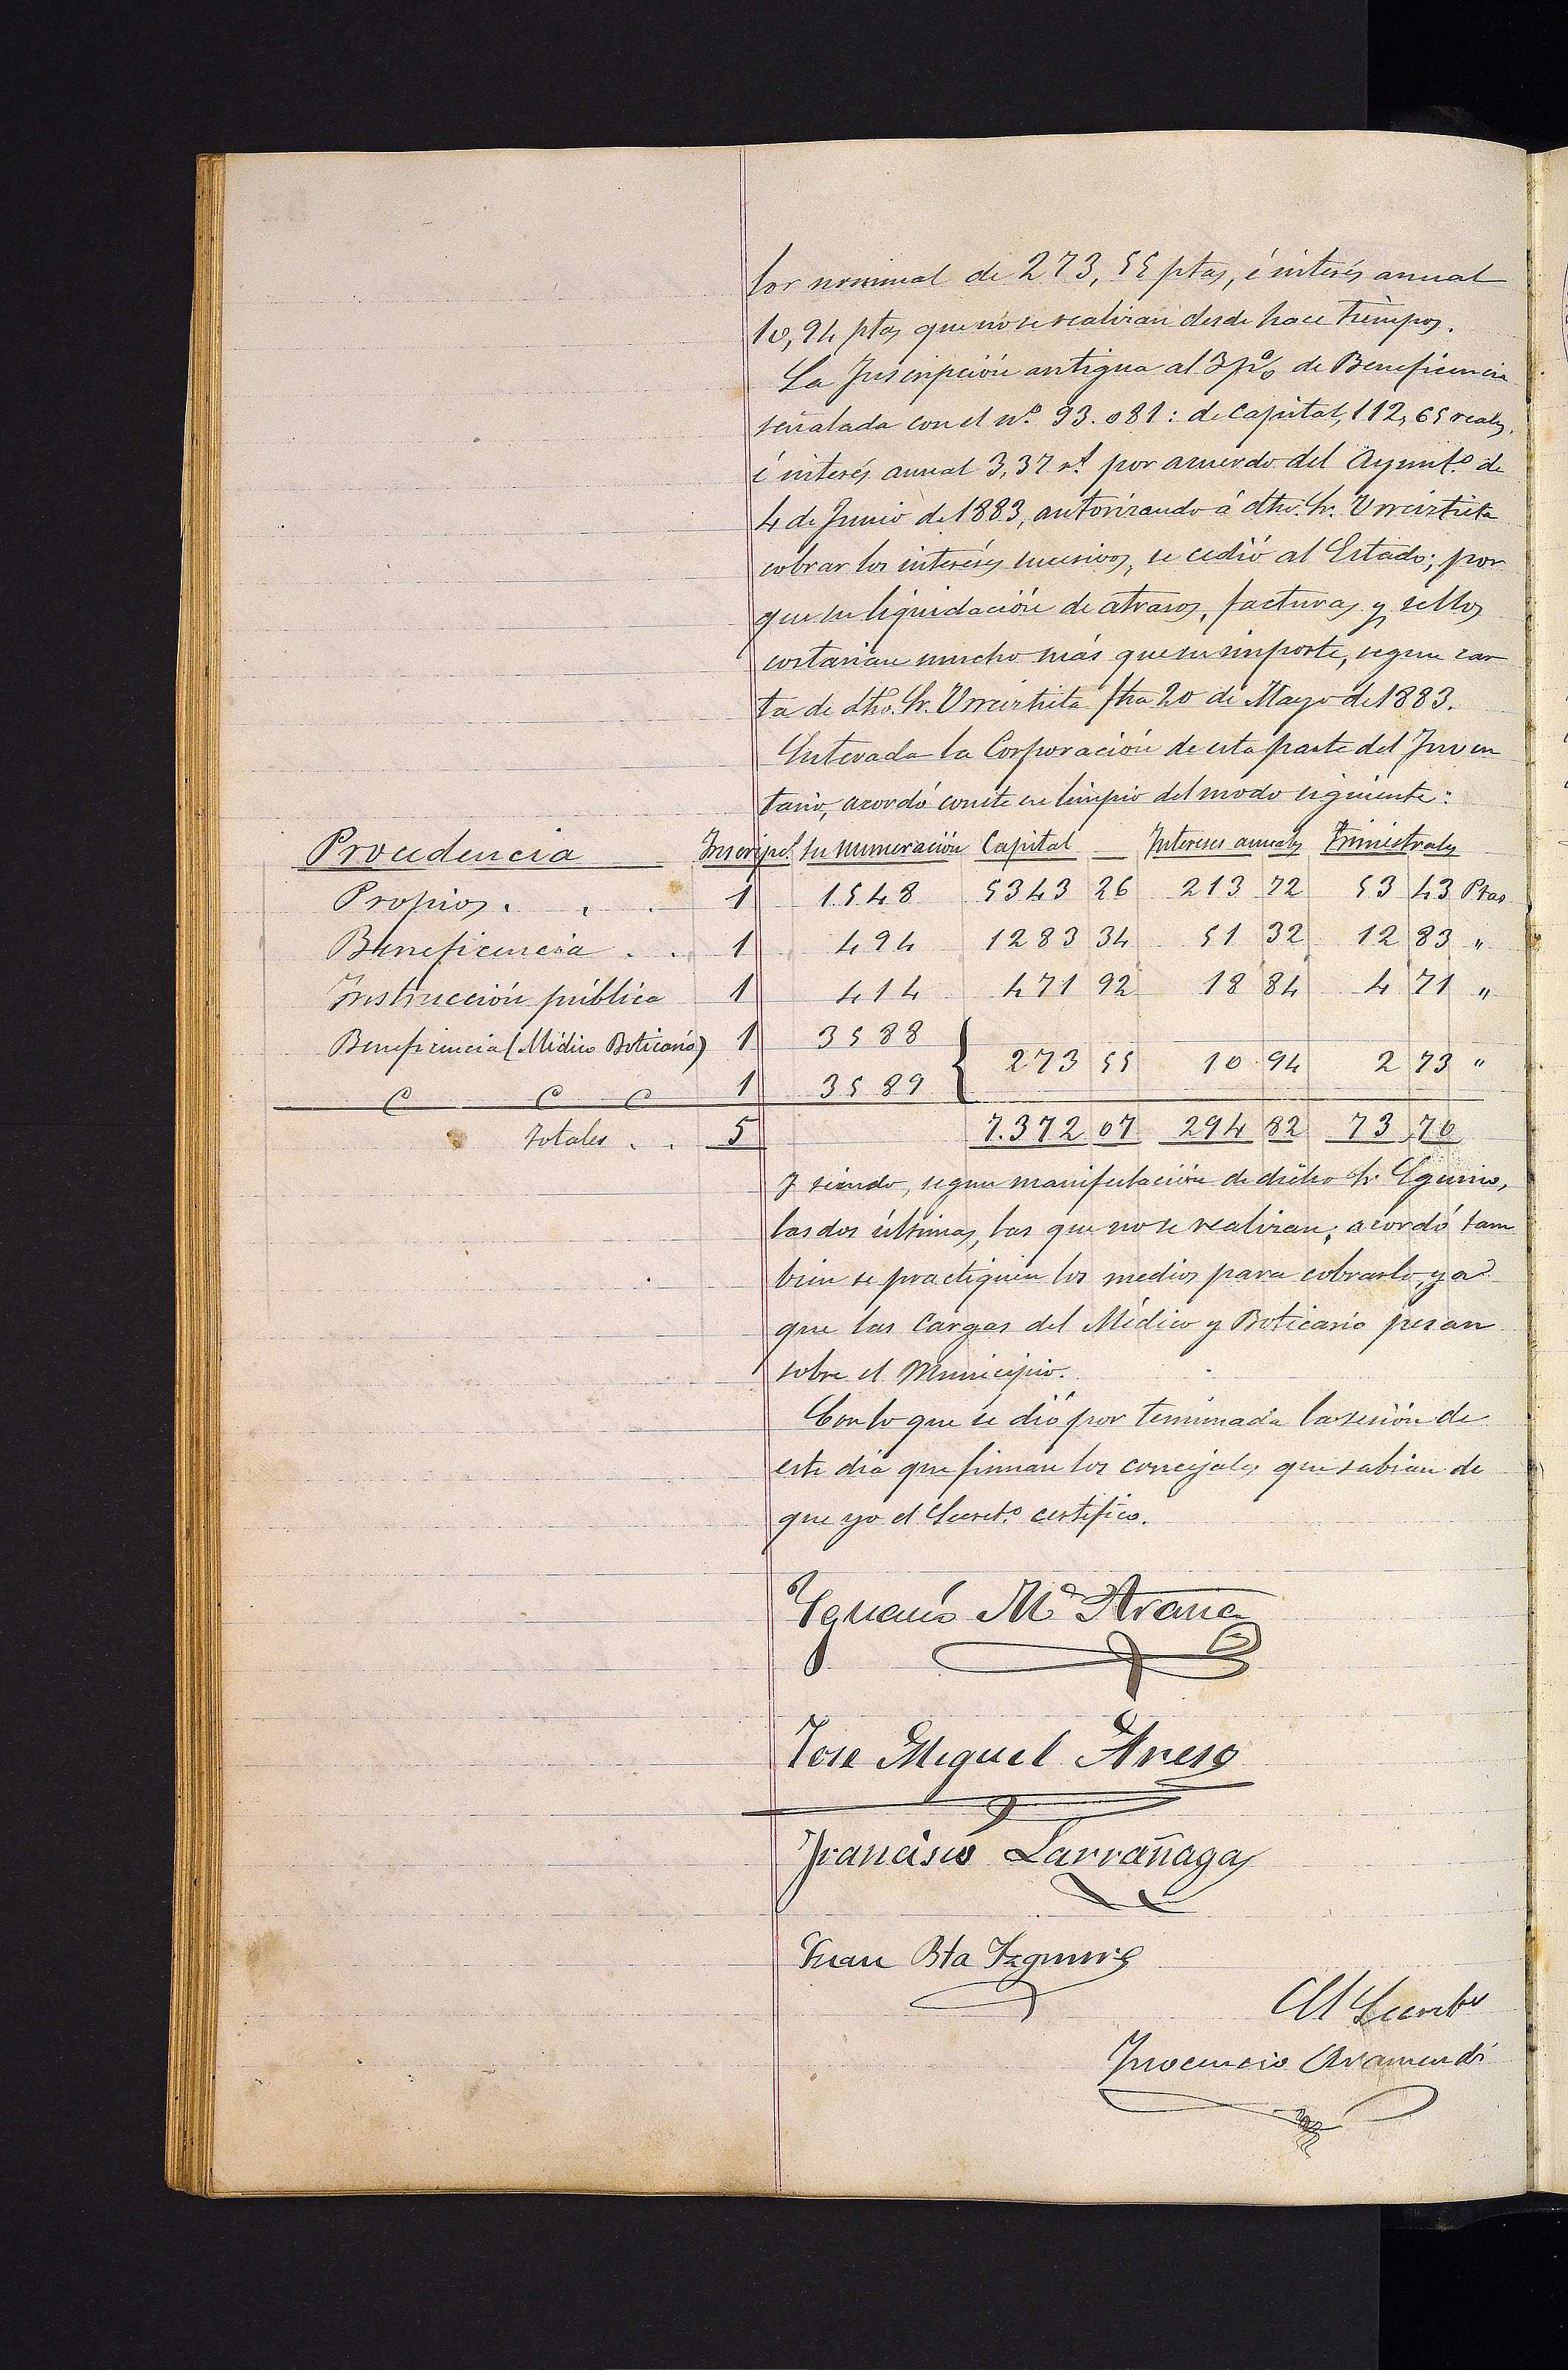 lor nominal de 273,55 ptas, é interés anual
10,94 ptas que no se realizan desde hace tiempos.
La Inscripción antigua al 3 p% de Beneficencia
señalada con el nº 93.081: de capital, 112,65 reales,
é interés anual 3,37 rs. por acuerdo del Ayuntº de
4 de Junio de 1883, autorizando á dho. Sr. Urreiztieta
cobrar los intereses sucesivos, se cedió al Estado; por
que su liquidación de atrasos, facturas y sellos
costarian mucho más que su importe, segun car
ta de dho. Sr. Urreiztieta fha 20 de Mayo de 1883.
Enterada la Corporación de esta parte del Inven
tario, acordó conste en limpio del modo siguiente:
Procedencia Inscripcs. su numeración Capital Intereses anuales Trimestrales
Propios . . . 1 1548 5343 26 213 72 53 43 Ptas
Beneficencia . . 1 494 1283 34 51 32 12 83 "
Instrucción pública 1 414 471 92 18 84 4 71 "
Beneficencia (Médico Boticario) 1 3588
273 55 10 94 2 73 "
1 3589
Totales . . 5 7.372 07 294 82 73 70
Y siendo, segun manifestación de dicho Sr. Eguino,
las dos últimas, las que no se realizan; acordó tam
bien se practiquen los medios para cobrarlo, ya
que las Cargas del Médico y Boticario pesan
sobre el Municipio.
Con lo que se dió por terminada la sesión de
este día que firman los concejales que sabian de
que yo el Secretº certifico.
Ygnacio Mª Arana
Jose Miguel Areso
Francisco Larrañaga
Juan Bta
El Secretº
Inocencio Aramendi